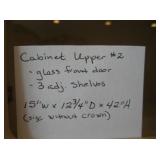 Cabinet Upper #2
- glass front door
- 3 adj. shelves
15"W x 12 3/4"D x 42"H
(size without crown)